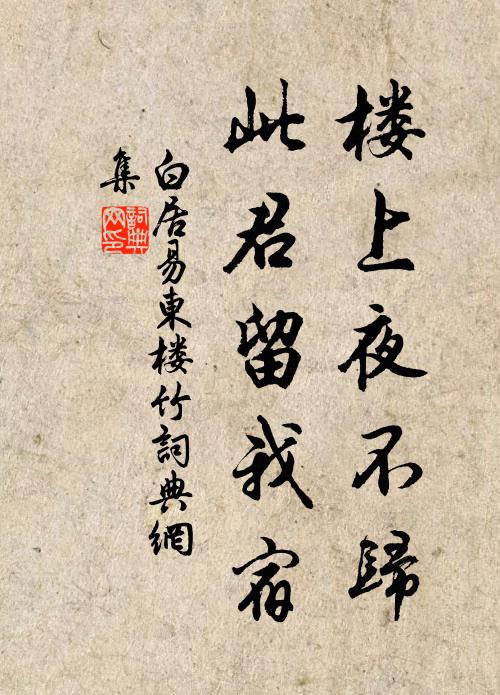 楼上夜不歸
此君留我宿
白居易東楼竹詞典網
集
詞典網印